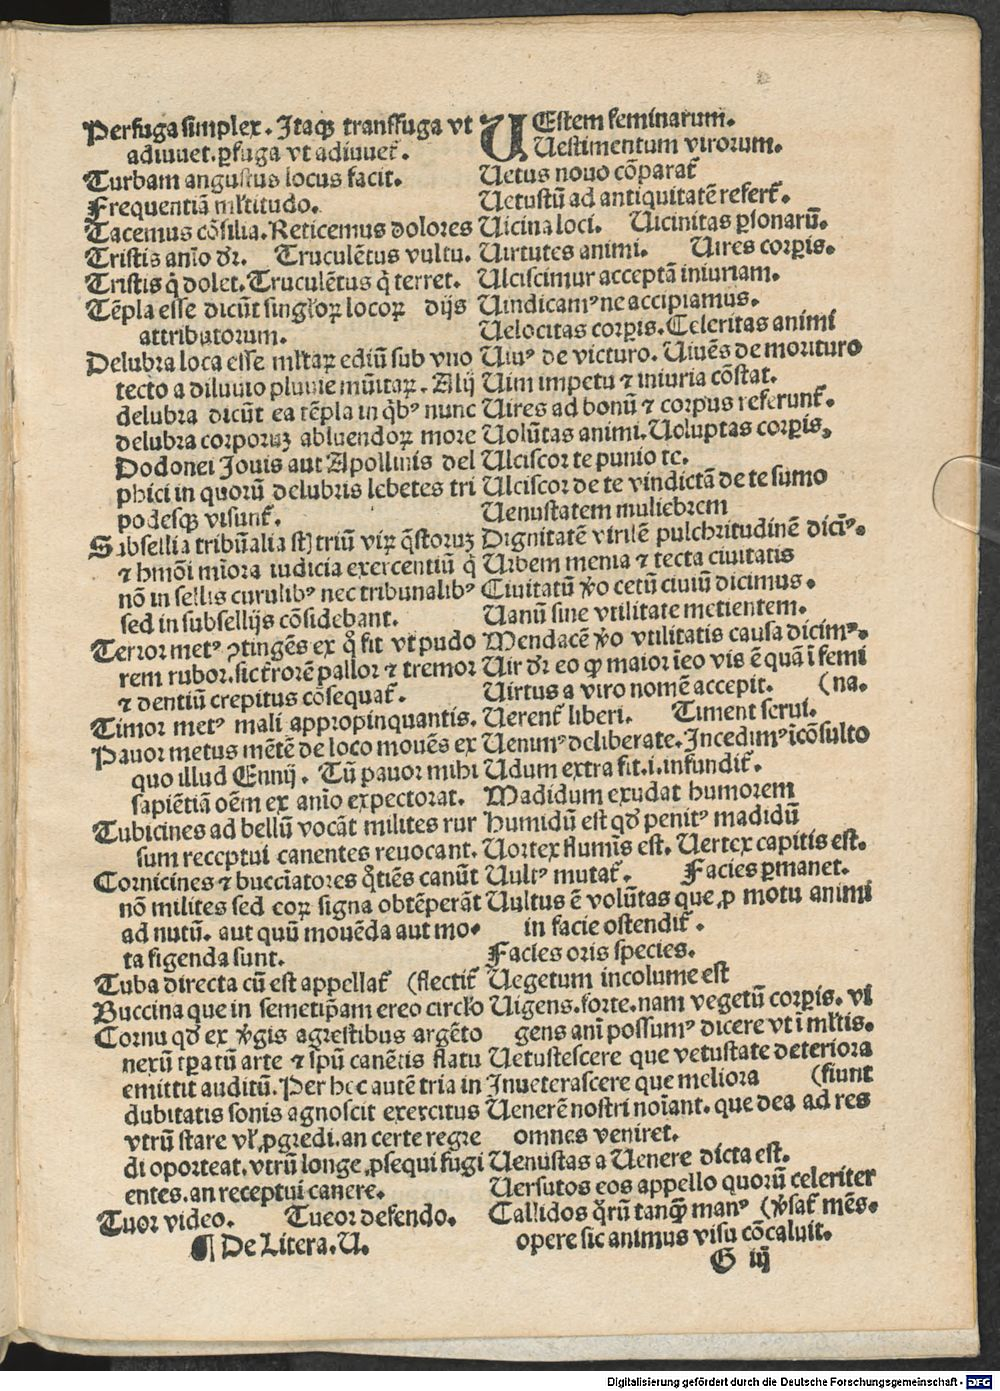 Perfuga simplex. Itaqꝫ transfuga vt
adiuuet. ꝑfuga vt adiuuet̃.
Turbam angustus locus facit.
Frequentiã ml̃titudo.
Tacemus cõsilia. Reticemus dolores
Tristis anĩo dr̃. Truculẽtus vultu.
Tristis q̃ dolet. Truculẽtus q̃ terret.
Tẽpla esse dicũt singl̃oꝝ locoꝝ dijs
attributorum.
Delubra loca esse ml̃taꝝ ediũ sub vno
tecto a diluuio pluuie mũitaꝝ. Alij
delubra dicũt ea tẽpla in q̃bꝰ nunc
delubra corporuꝫ abluendoꝝ more
Dodonei Jouis aut Apollinis del
phici in quorũ delubris lebetes tri
podesqꝫ visunt̃.
Subsellia tribũalia st̃ triũ viꝝ q̃storuꝫ
⁊ hmõi mĩora iudicia exercentiũ q̃
nõ in sellis curulibꝰ nec tribunalibꝰ
sed in subsellijs cõsidebant.
Terror metꝰ ꝯtingẽs ex q̃ fit vt pudo
rem rubor. sic t̃rorẽ pallor ⁊ tremor
⁊ dentiũ crepitus cõsequat̃.
Timor metꝰ mali appropinquantis.
Pauor metus mẽtẽ de loco mouẽs ex
quo illud Ennij. Tũ pauor mihi
sapiẽtiã oẽm ex anĩo expectorat.
Tubicines ad bellũ vocãt milites rur
sum receptui canentes reuocant.
Cornicines ⁊ bucciatores q̃tiẽs canũt
nõ milites sed eoꝝ signa obtẽperãt
ad nutũ. aut quũ mouẽda aut mo-
ta figenda sunt.
Tuba directa cũ est appellat̃ (flectit̃
Buccina que in semetip̃am ereo circl̃o
Cornu qđ ex v̾gis agrestibus argẽto
nexũ tꝑatũ arte ⁊ sp̃u canẽtis flatu
emittit auditũ. Per hec autẽ tria in
dubitatis sonis agnoscit exercitus
vtrũ stare vl̃ ꝓgredi. an certe regre
di oporteat. vtrũ longe ꝓsequi fugi
entes. an receptui canere.
Tuor video. Tueor defendo.
¶ De Litera. U.
UEstem feminarum.
Uestimentum virorum.
Uetus nouo cõparat̃
Uetustũ ad antiquitatẽ refert̃.
Uicina loci. Uicinitas ꝑsonarũ.
Uirtutes animi. Uires corꝑis.
Ulciscimur acceptã iniuriam.
Uindicamꝰ ne accipiamus.
Uelocitas corꝑis. Celeritas animi
Uiuꝰ de victuro. Uiuẽs de morituro
Uim impetu ⁊ iniuria cõstat.
Uires ad bonũ ⁊ corpus referunt̃.
Uolũtas animi. Uoluptas corꝑis,
Ulciscor te punio te.
Ulciscor de te vindictã de te sumo
Uenustatem muliebrem
Dignitatẽ virilẽ pulchritudinẽ dicim̃ꝰ.
Urbem menia ⁊ tecta ciuitatis
Ciuitatũ v̾o cetũ ciuiũ dicimus.
Uanũ sine vtilitate metientem.
Mendacẽ v̾o vtilitatis causa dicimꝰ.
Uir dr̃ eo ꝙ maior ĩ eo vis ẽ quã ĩ femi
Uirtus a viro nomẽ accepit. (na.
Uerent̃ liberi. Timent serui.
Uenimꝰ deliberate. Incedimꝰ ĩcõsulto
Udum extra fit. i. infundit̃.
Madidum exudat humorem
Humidũ est qđ penitꝰ madidũ
Uortex flumĩs est. Uertex capitis est.
Uultꝰ mutat̃. Facies ꝑmanet.
Uultus ẽ volũtas que ꝓ motu animi
in facie ostendit̃.
Facies oris species.
Uegetum incolume est
Uigens. forte. nam vegetũ corꝑis. vi
gens anĩ possumꝰ dicere vt ĩ ml̃tis.
Uetustescere que vetustate deteriora
Inueterascere que meliora (fiunt
Uenerẽ nostri noĩant. que dea ad res
omnes veniret.
Uenustas a Uenere dicta est.
Uersutos eos appello quorũ celeriter
Callidos q̃rũ tanqꝫ manꝰ (v̾sat̃ mẽs.
opere sic animus visu cõcaluit.
G iij
Digitalisierung gefördert durch die Deutsche Forschungsgemeinschaft - DFG